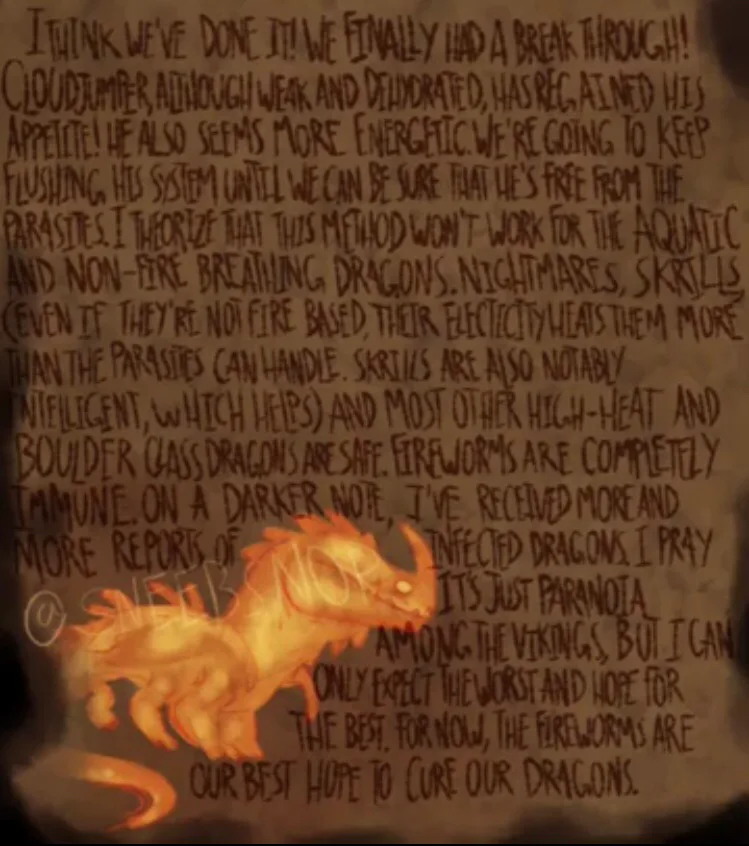 I THINK WE'VE DONE IT! WE FINALLY HAD A BREAK THROUGH!
CLOUDJUMPER, ALTHOUGH WEAK AND DEHYDRATED, HAS REGAINED HIS
APPETITE! HE ALSO SEEMS MORE ENERGETIC. WE'RE GOING TO KEEP
FLUSHING HIS SYSTEM UNTIL WE CAN BE SURE THAT HE'S FREE FROM THE
PARASITES. I THEORIZE THAT THIS METHOD WON'T WORK FOR THE AQUATIC
AND NON-FIRE BREATHING DRAGONS. NIGHTMARES, SKRILLS,
(EVEN IF THEY'RE NOT FIRE BASED, THEIR ELECTICITY HEATS THEM MORE
THAN THE PARASITES CAN HANDLE. SKRILLS ARE ALSO NOTABLY
INTELLIGENT, WHICH HELPS) AND MOST OTHER HIGH-HEAT AND
BOULDER CLASS DRAGONS ARE SAFE. FIREWORMS ARE COMPLETELY
IMMUNE. ON A DARKER NOTE, I'VE RECEIVED MORE AND
MORE REPORTS OF INFECTED DRAGONS. I PRAY
IT'S JUST PARANOIA
AMONG THE VIKINGS, BUT I CAN
ONLY EXPECT THE WORST AND HOPE FOR
THE BEST. FOR NOW, THE FIREWORMS ARE
OUR BEST HOPE TO CURE OUR DRAGONS.
@SNEEBSNOP